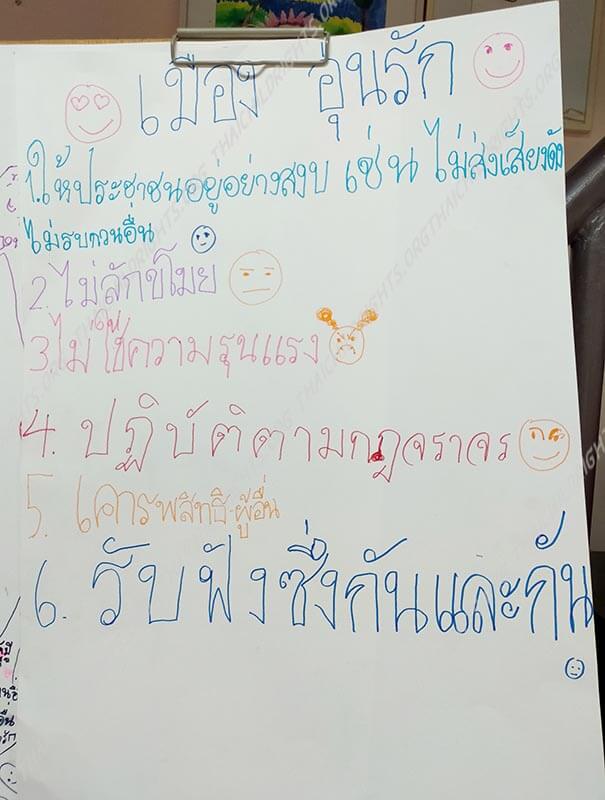 เมือง อุ่นรัก
1.ให้ประชาชนอยู่อย่างสงบ เช่น ไม่ส่งเสียงดัง
ไม่รบกวนอื่น
2.ไม่ลักขโมย
3.ไม่ใช้ความรุนแรง
4. ปฏิบัติตามกฎจราจร
5. เคารพสิทธิผู้อื่น
6. รับฟังซึ่งกันและกัน
THAICHILDRIGHTS.ORG